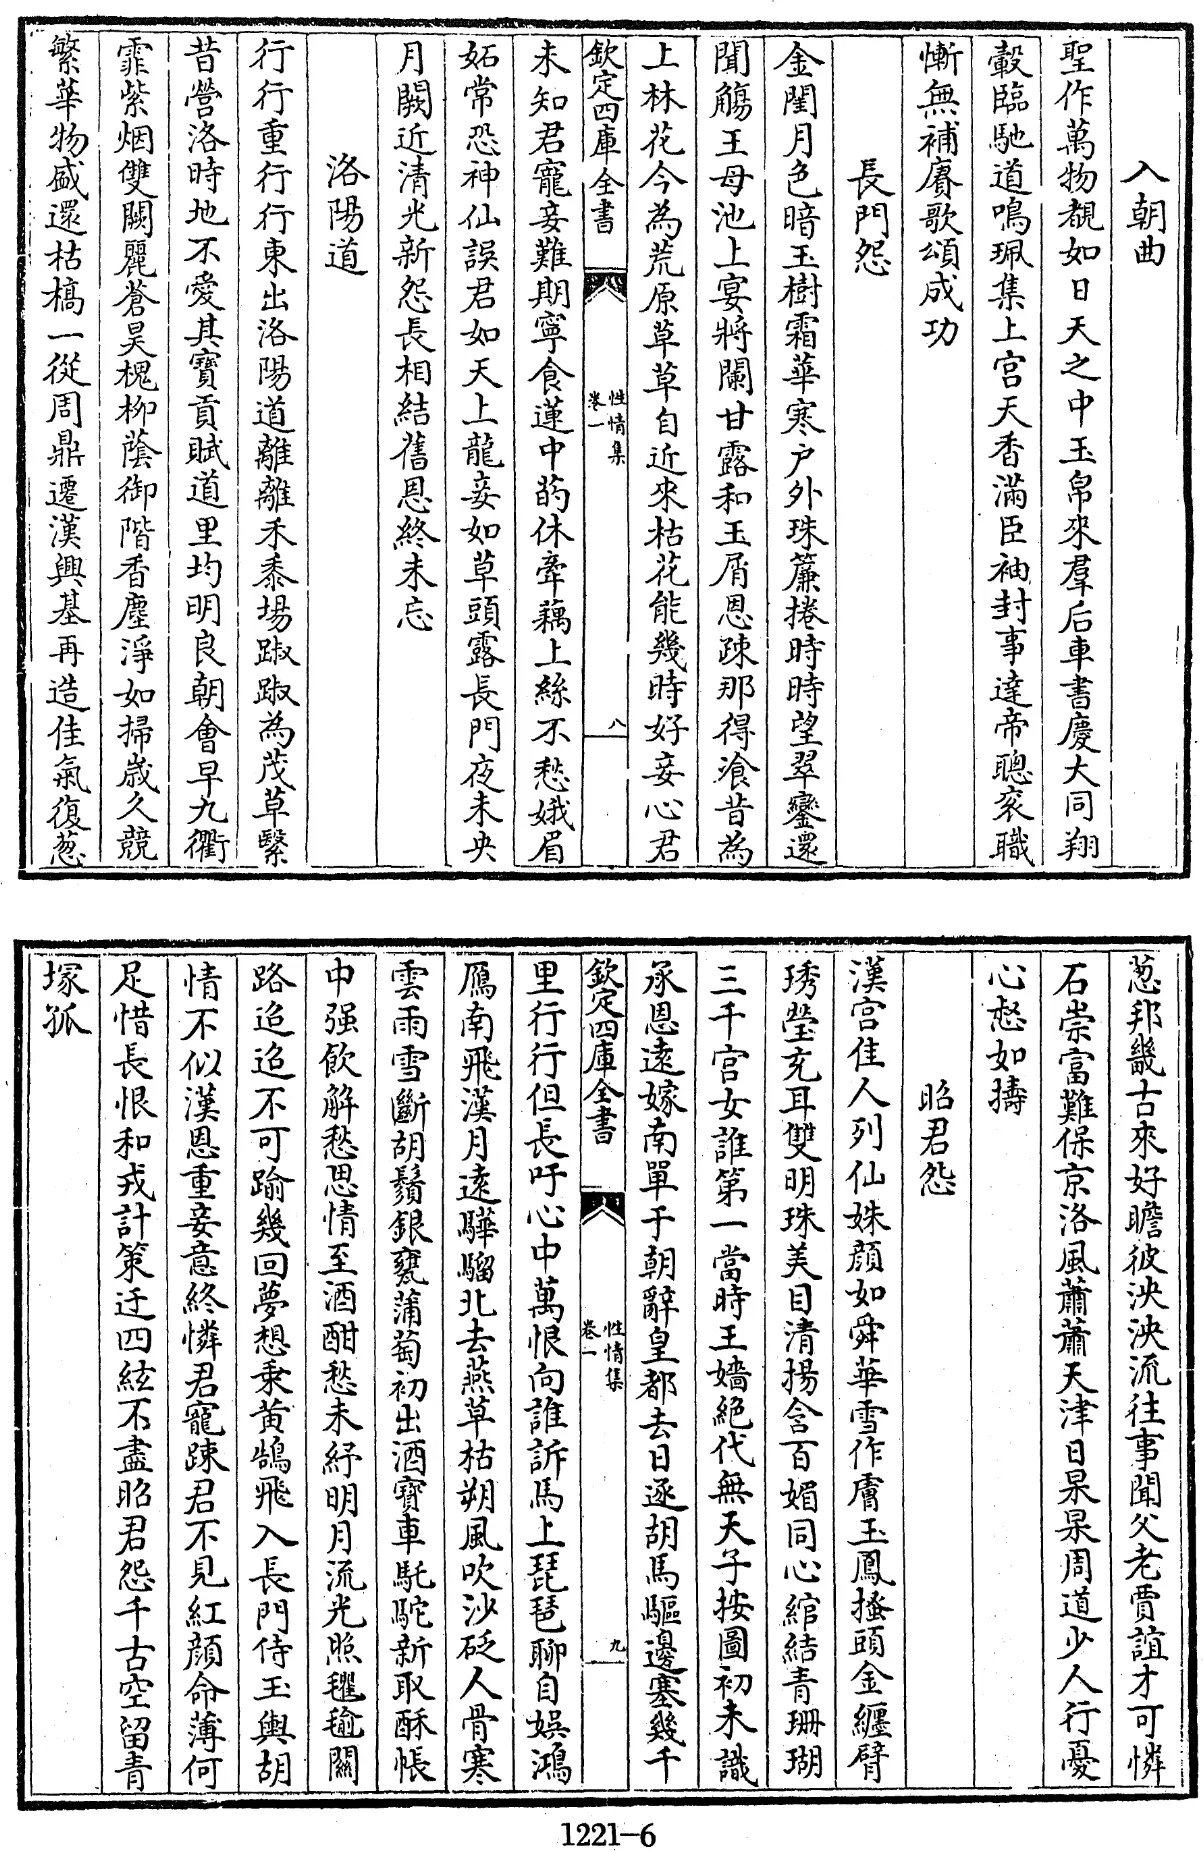 入朝曲
聖作萬物覩如日天之中玉帛來羣后車書慶大同翔
轂臨馳道鳴珮集上宮天香滿臣袖封事達帝聰衮職
慚無補賡歌頌成功
長門怨
金閨月色暗玉樹霜華寒户外珠簾捲時時望翠鑾還
聞觴王母池上宴將闌甘露和玉屑恩疎那得飡昔為
上林花今為荒原草草自近來枯花能幾時好妾心君
欽定四庫全書
性情集
卷一
八
未知君寵妾難期寧食蓮中菂休牽藕上絲不愁娥眉
妬常恐神仙誤君如天上龍妾如草頭露長門夜未央
月闕近清光新怨長相結舊恩終未忘
洛陽道
行行重行行東出洛陽道離離禾黍場踧踧為茂草繄
昔營洛時地不愛其寶貢賦道里均明良朝會早九衢
霏紫烟雙闕麗蒼昊槐柳蔭御階香塵淨如掃歲久競
繁華物盛還枯槁一從周鼎遷漢興基再造佳氣復葱
葱邦畿古來好瞻彼泱泱流往事聞父老賈誼才可憐
石崇富難保京洛風蕭蕭天津日杲杲周道少人行憂
心惄如擣
昭君怨
漢宮佳人列仙姝顔如舜華雪作膚玉鳳搔頭金纏臂
琇瑩充耳雙明珠美目清揚含百媚同心綰結青珊瑚
三千宮女誰第一當時王嬙絶代無天子按圖初未識
承恩遠嫁南單于朝辭皇都去日逐胡馬驅邊塞幾千
欽定四庫全書
性情集
卷一
九
里行行但長吁心中萬恨向誰訴馬上琵琶聊自娱鴻
鴈南飛漢月遠驊騮北去燕草枯朔風吹沙砭人骨寒
雲雨雪斷胡鬚銀甕蒲萄初出酒寶車馲駝新取酥帳
中强飲解愁思情至酒酣愁未紓明月流光照氍毹關
路迢迢不可踰幾回夢想乘黄鵠飛入長門侍玉輿胡
情不似漢恩重妾意終憐君寵踈君不見紅顔命薄何
足惜長恨和戎計策迂四絃不盡昭君怨千古空留青
塚孤
1221-6